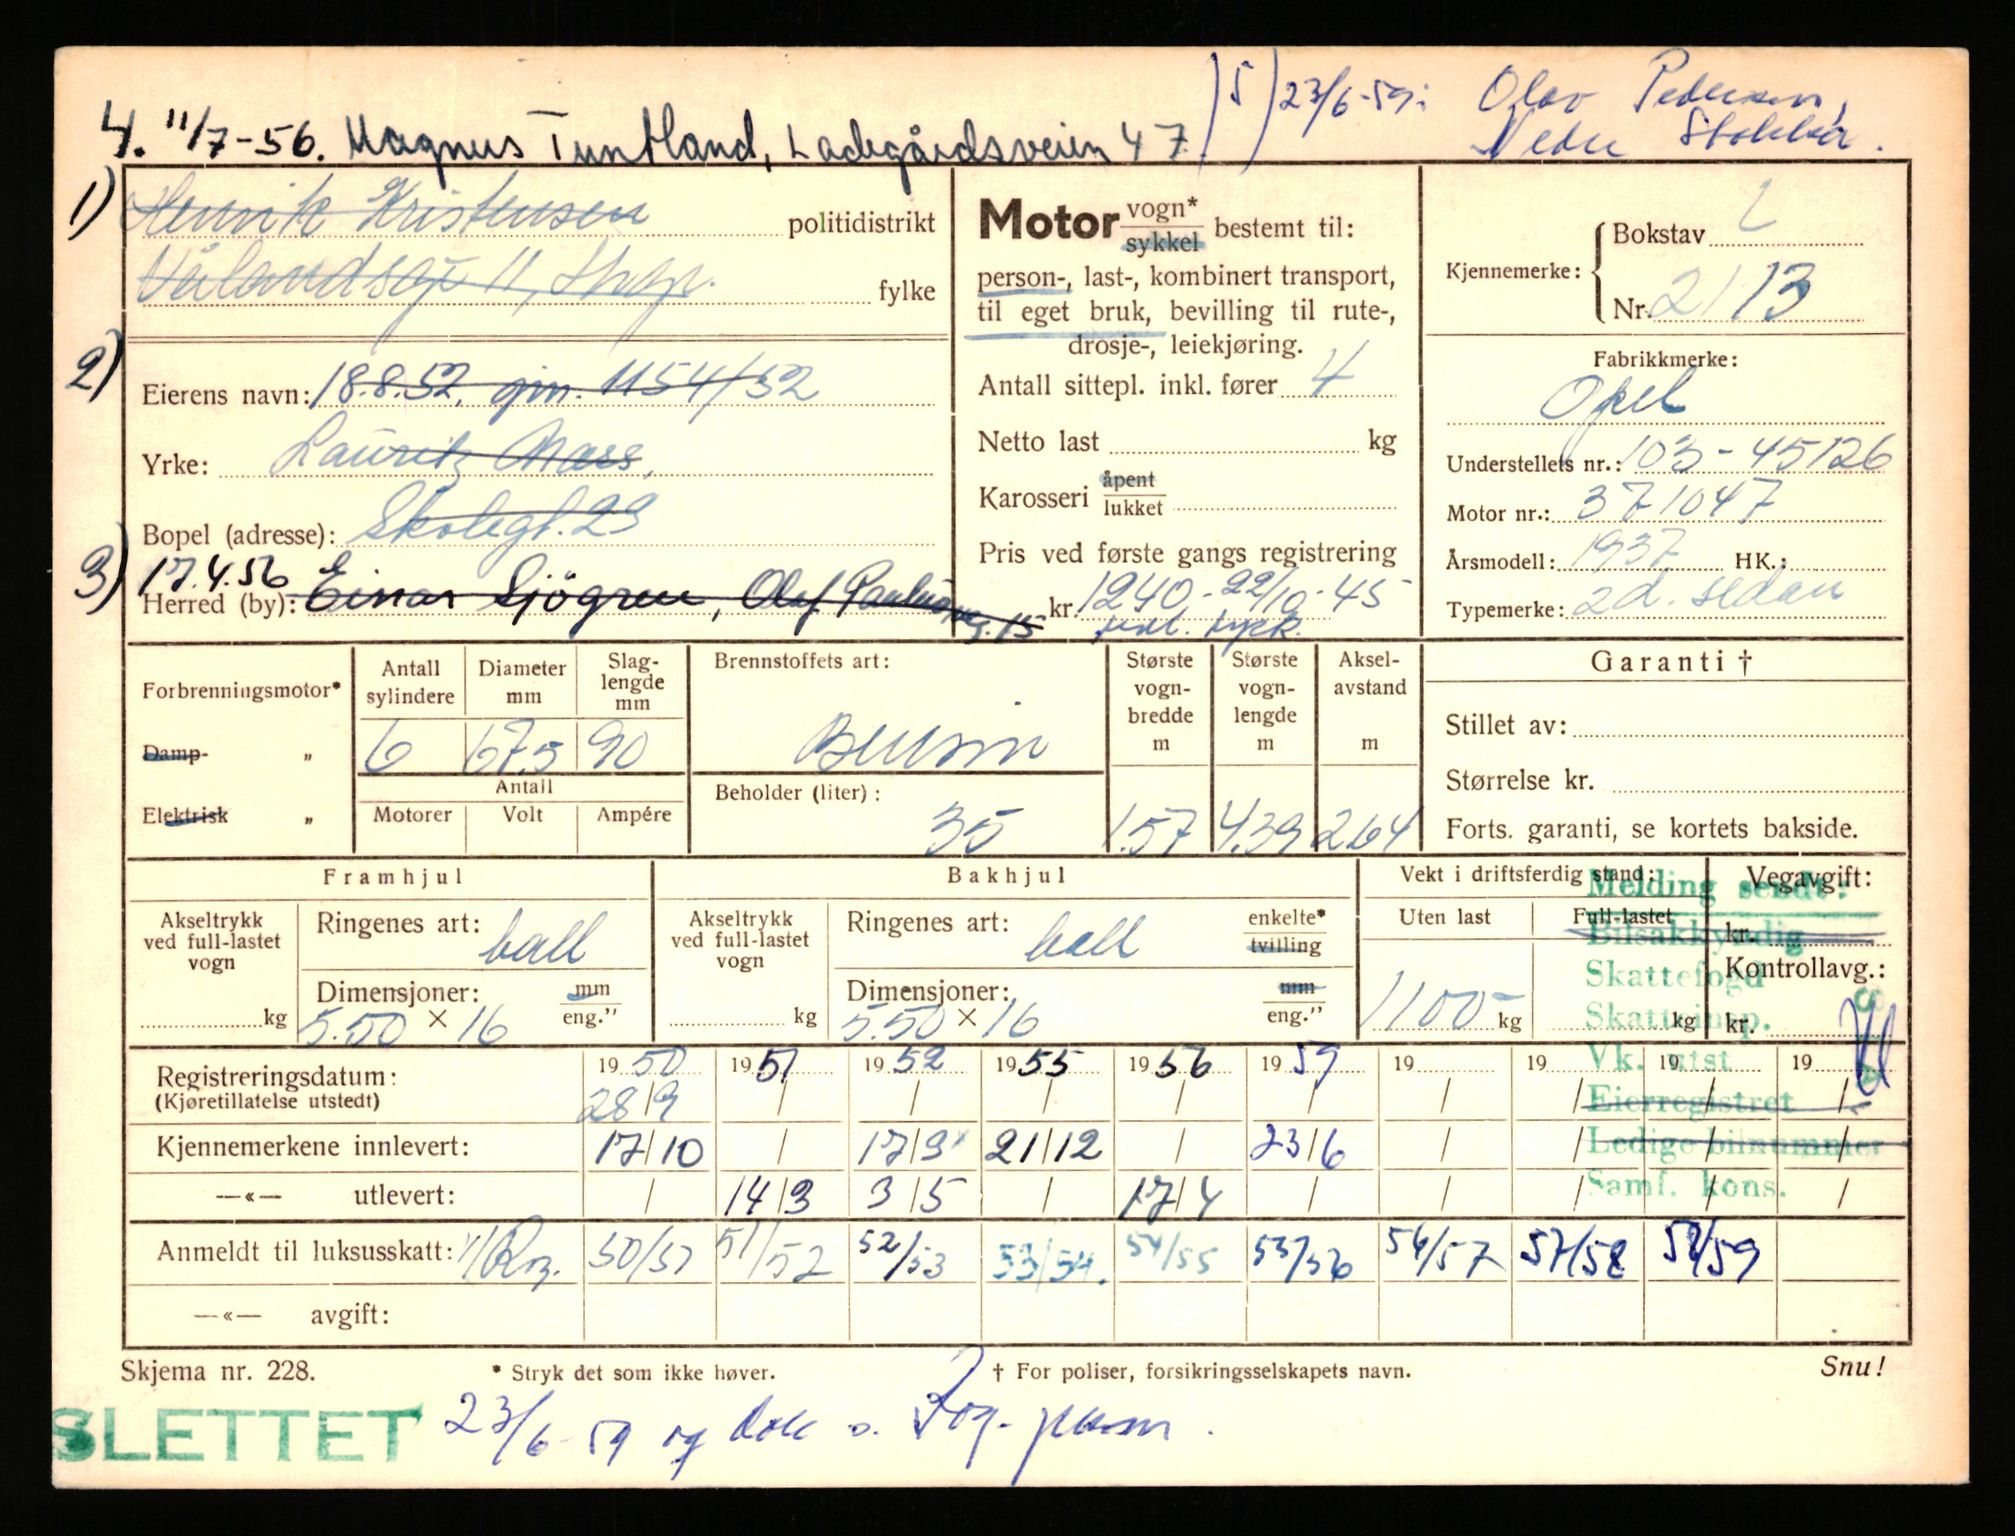 5) 23/6-59: Olav Pedersen,
4. 11/7-56. Magnus Tuntland, Ladegårdsveien 47
Nedre Stokkа.
1) Henrik Kristensen politidistrikt
Vålandsgt 11, fylke
2)
Eierens navn: 18.8.52. gjen. 1154/52
Yrke: Lauritz Næss,
Bopel (adresse): Skolegt. 23
3) 17.4.56 Einar Sjögren, Olaf Paulus
Herred (by): g. 15
Motor vogn* sykkel bestemt til:
person-, last-, kombinert transport,
til eget bruk, bevilling til rute-,
drosje-, leiekjøring.
Antall sittepl. inkl. fører 4
Netto last kg
Karosseri åpent lukket
Pris ved første gangs registrering
kr. 1240.- 22/10-45
Kjennemerke: Bokstav L
Nr. 21173
Fabrikkmerke:
Opel
Understellets nr.: 103-45126
Motor nr.: 371047
Årsmodell: 1937 HK.:
Typemerke: 2d. sedan
Forbrenningsmotor*
Damp- „
Elektrisk „
Antall sylindere Diameter mm Slag-lengde mm
6 67.5 90
Antall
Motorer Volt Ampére
Brennstoffets art:
Bensin
Beholder (liter):
35
Største vogn-bredde m Største vogn-lengde m Aksel-avstand m
1.57 4.39 2.64
Garanti †
Stillet av:
Størrelse kr.
Forts. garanti, se kortets bakside.
Framhjul
Akseltrykk ved full-lastet vogn
kg
Ringenes art: ball
Dimensjoner: mm
5.50 × 16 eng."
Bakhjul
Akseltrykk ved full-lastet vogn
kg
Ringenes art: enkelte* tvilling
ball
Dimensjoner: mm
5.50 × 16 eng."
Vekt i driftsferdig stand:
Uten last Full-lastet
1100- kg kg
Vegavgift:
kr.
Kontrollavg.:
kr.
Melding sendt:
Bilsakkyndig
Skattefogd
Skatteinsp.
Vk. utst
Eierregistret
Ledige bilnummer
Samf. kons.
1950 1951 1952 1955 1956 1959 19 19 19 19
Registreringsdatum: 28/9 / / / / / / / / /
(Kjøretillatelse utstedt)
Kjennemerkene innlevert: 17/10 / 17/9 21/12 / 23/6 / / / /
—«— utlevert: / 14/3 3/5 / 17/4 / / / / /
Anmeldt til luksusskatt: 50/51 51/52 52/53 53/54. 54/55 55/56 56/57 57/58 58/59
—«— avgift:
Skjema nr. 228. * Stryk det som ikke høver. † For poliser, forsikringsselskapets navn. Snu!
SLETTET 23/6-59 og